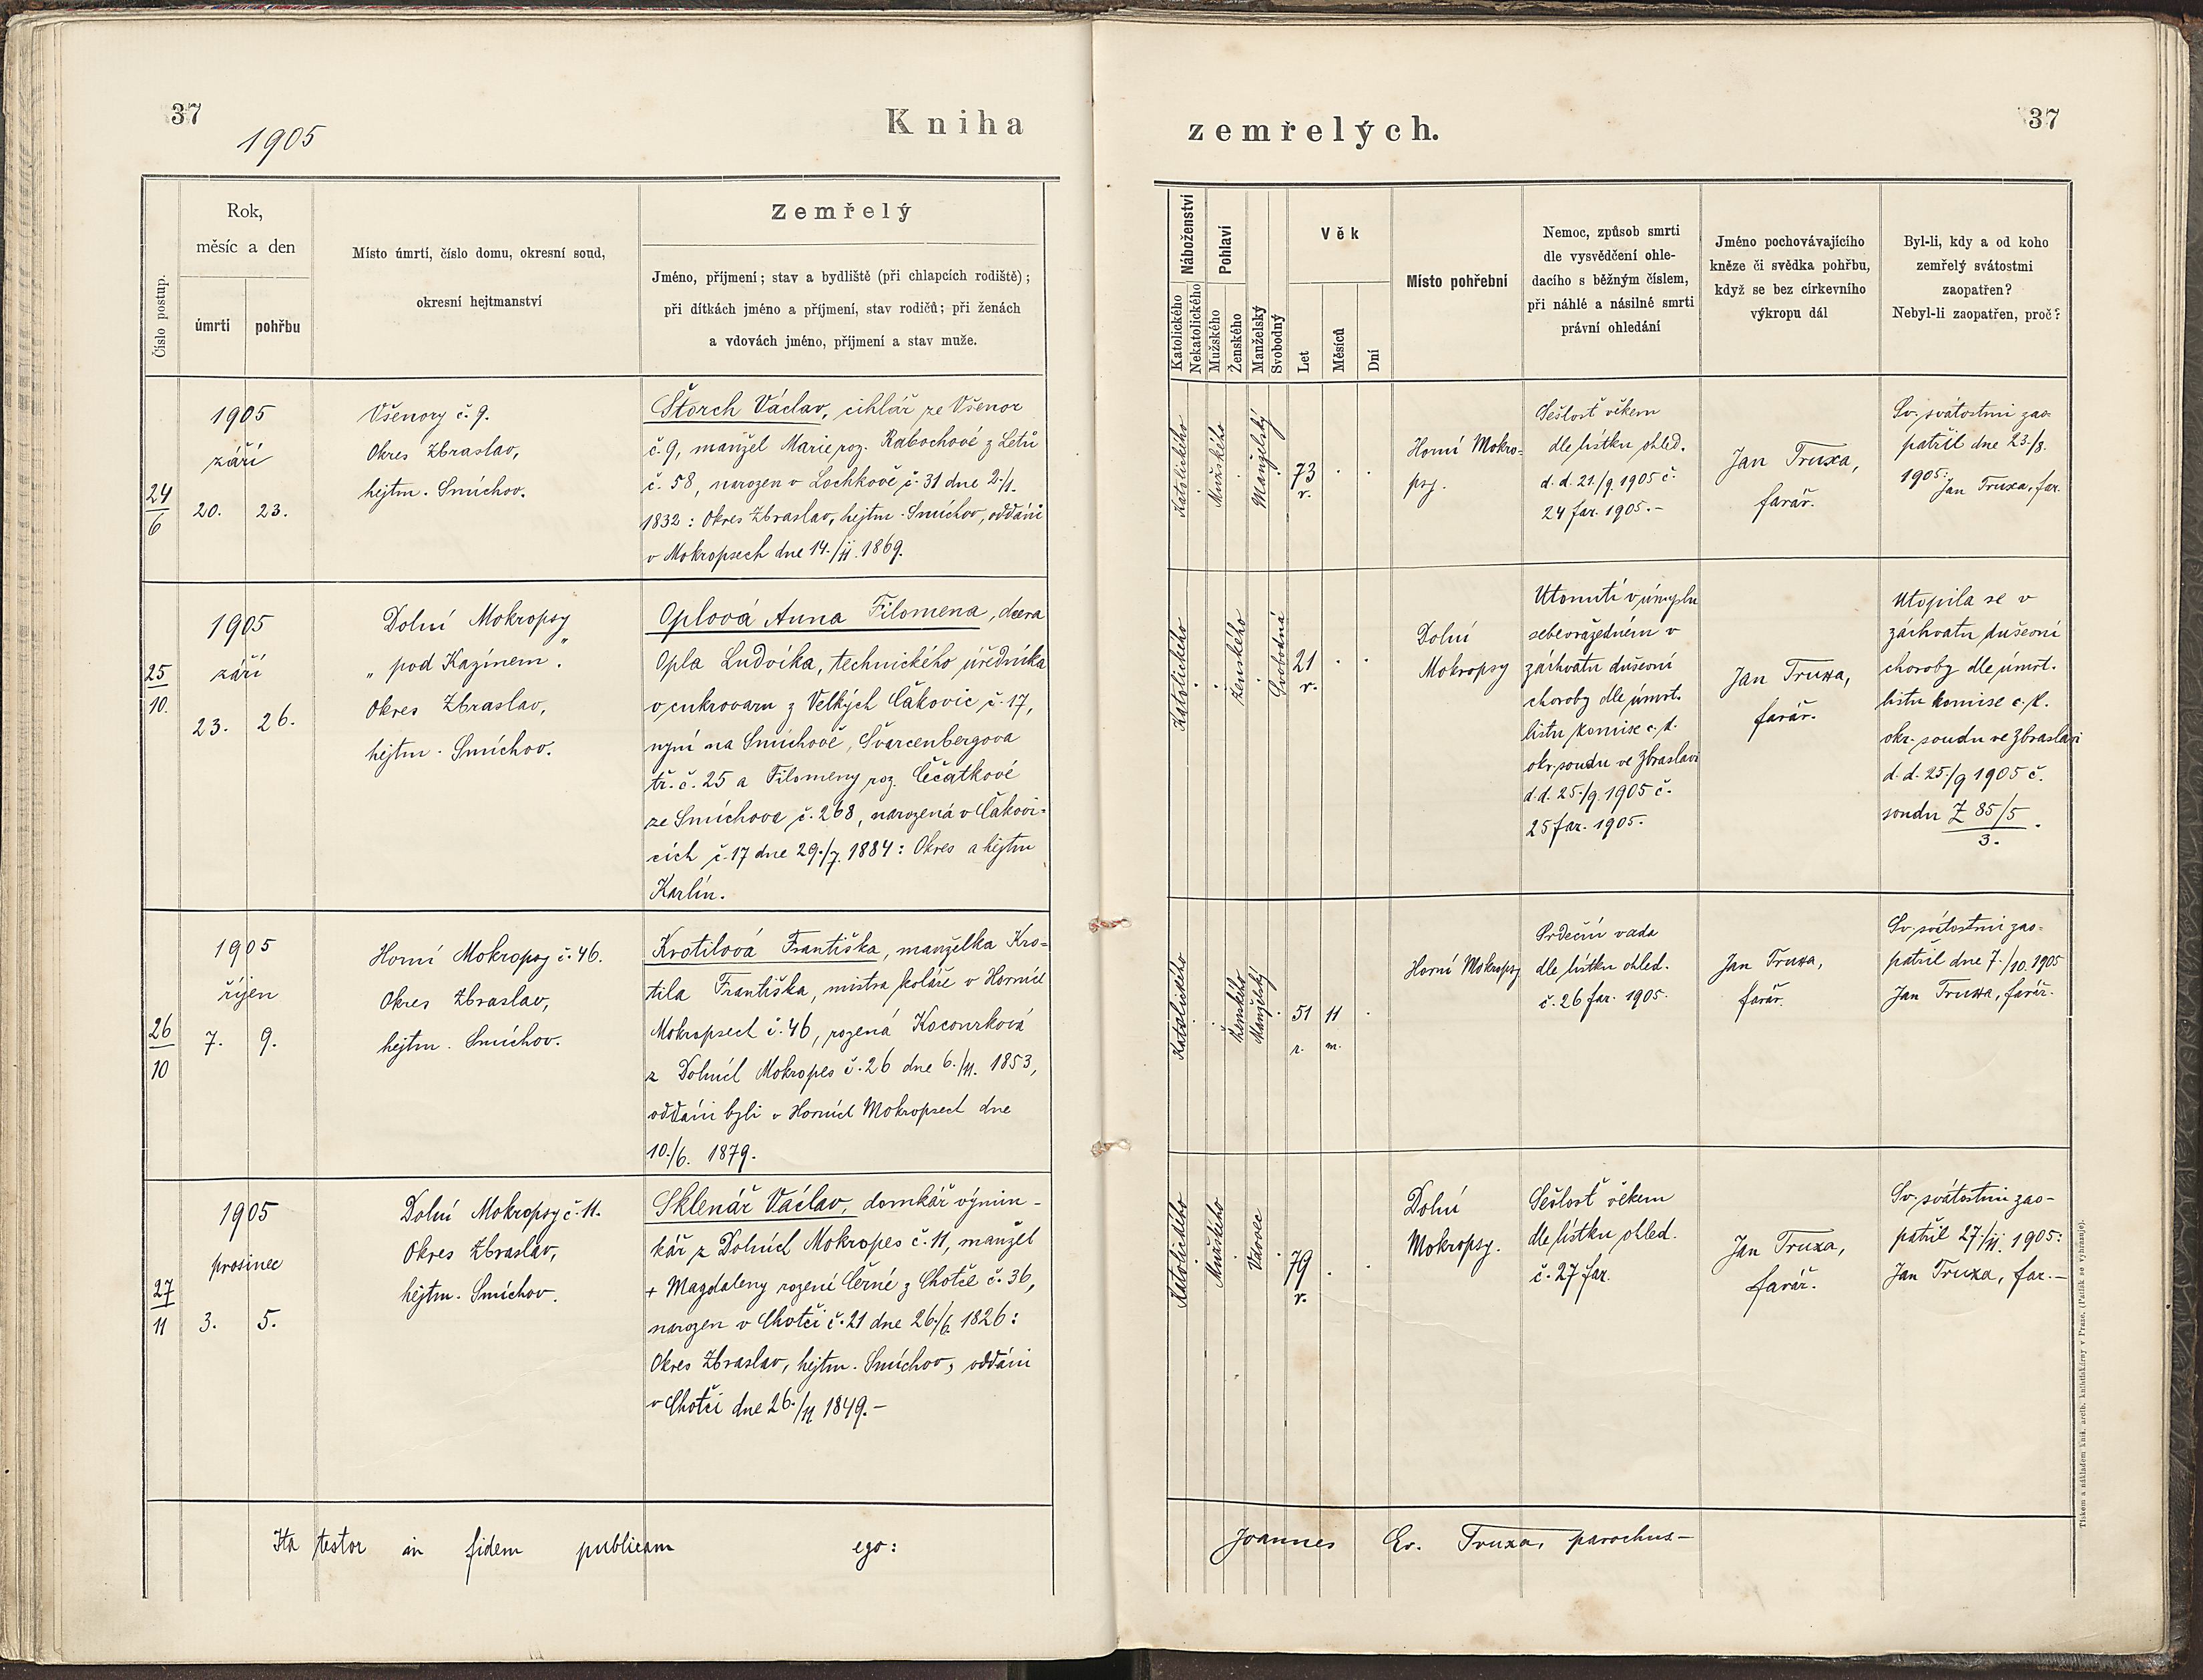 37
1905
Kniha
Číslo postup.
Rok,
měsíc a den
úmrtí
pohřbu
Místo úmrtí, číslo domu, okresní soud,
okresní hejtmanství
Zemřelý
Jméno, příjmení; stav a bydliště (při chlapcích rodiště);
při dítkách jméno a příjmení, stav rodičů; při ženách
a vdovách jméno, příjmení a stav muže.
24
6
1905
září
20.
23.
Všenory č. 9.
Okres Zbraslav,
hejtm. Smíchov.
Štorch Václav, cihlář ze Všenor
č. 9, manžel Marie roz. Rábochové z Letů
č. 58, narozen v Lochkově č. 31 dne 2./1.
1832: Okres Zbraslav, hejtm. Smíchov, oddáni
v Mokropsech dne 14./11. 1869.
25
10.
1905
září
23.
26.
Dolní Mokropsy
„pod Kazínem".
Okres Zbraslav,
hejtm. Smíchov.
Oplová Anna Filomena, dcera
Opla Ludvíka, technického úředníka
v cukrovaru z Velkých Čakovic č. 17,
nyní na Smíchově, Švarcenbergova
tř. č. 25 a Filomeny roz. Čečatkové
ze Smíchova č. 268, narozená v Čakovi-
cích č. 17 dne 29./7. 1884: Okres a hejtm
Karlín.
26
10
1905
říjen
7.
9.
Horní Mokropsy č. 46.
Okres Zbraslav,
hejtm. Smíchov.
Krotilová Františka, manželka Kro-
tila Františka, mistra koláře v Horních
Mokropsech č. 46, rozená Kocourková
z Dolních Mokropes č. 26 dne 6./11. 1853,
oddáni byli v Horních Mokropsech dne
10./6. 1879.
27
11
1905
prosinec
3.
5.
Dolní Mokropsy č. 11.
Okres Zbraslav,
hejtm. Smíchov.
Sklenář Václav, domkář výmin-
kář z Dolních Mokropes č. 11, manžel
+ Magdaleny rozené Černé z Chotče č. 36,
narozen v Chotči č. 21 dne 26./6. 1826:
Okres Zbraslav, hejtm. Smíchov, oddáni
v Chotči dne 26./11 1849.-
Ita testor in fidem publicam ego:
37
zemřelých.
Náboženství
Katolického
Nekatolického
Pohlaví
Mužského
Ženského
Manželský
Svobodný
Věk
Let
Měsíců
Dní
Místo pohřební
Nemoc, způsob smrti
dle vysvědčení ohle-
dacího s běžným číslem,
při náhlé a násilné smrti
právní ohledání
Jméno pochovávajícího
kněze či svědka pohřbu,
když se bez církevního
výkropu dál
Byl-li, kdy a od koho
zemřelý svátostmi
zaopatřen?
Nebyl-li zaopatřen, proč?
Katolického
Mužského
Manželský
73
r.
Horní Mokro-
psy.
Sešlosť věkem
dle lístku ohled.
d. d. 21./9. 1905 č.
24 far. 1905.-
Jan Truxa,
farář.
Sv. svátostmi zao-
patřil dne 23./8.
1905:
Jan Truxa, far.
Katolického
Ženského
Svobodná
21
r.
Dolní
Mokropsy
Utonutí v úmyslu
sebevražedném v
záchvatu duševní
choroby dle úmrt.
listu komise c. k.
okr. soudu ve Zbraslavi
d. d. 25./9. 1905 č.
25 far. 1905.
Jan Truxa,
farář.
Utopila se v
záchvatu duševní
choroby dle úmrt.
listu komise c. k.
okr. soudu ve Zbraslavi
d. d. 25./9 1905 č.
soudu Z 85/5
3.
Katolického
Ženského
Manželský
51
r.
11
m.
Horní Mokropsy
Srdeční vada
dle lístku ohled.
č. 26 far. 1905.
Jan Truxa,
farář.
Sv. svátostmi zao-
patřil dne 7./10. 1905
Jan Truxa, farář.
Katolického
Mužského
Vdovec
79
r.
Dolní
Mokropsy.
Sešlosť věkem
dle lístku ohled.
č. 27 far.
Jan Truxa,
farář.
Sv. svátostmi zao-
patřil 27./11. 1905:
Jan Truxa, far.-
Joannes Ev. Truxa, parochus-
Tiskem a nákladem kníž. arcib. knihtiskárny v Praze. (Patisk se vyhrazuje).